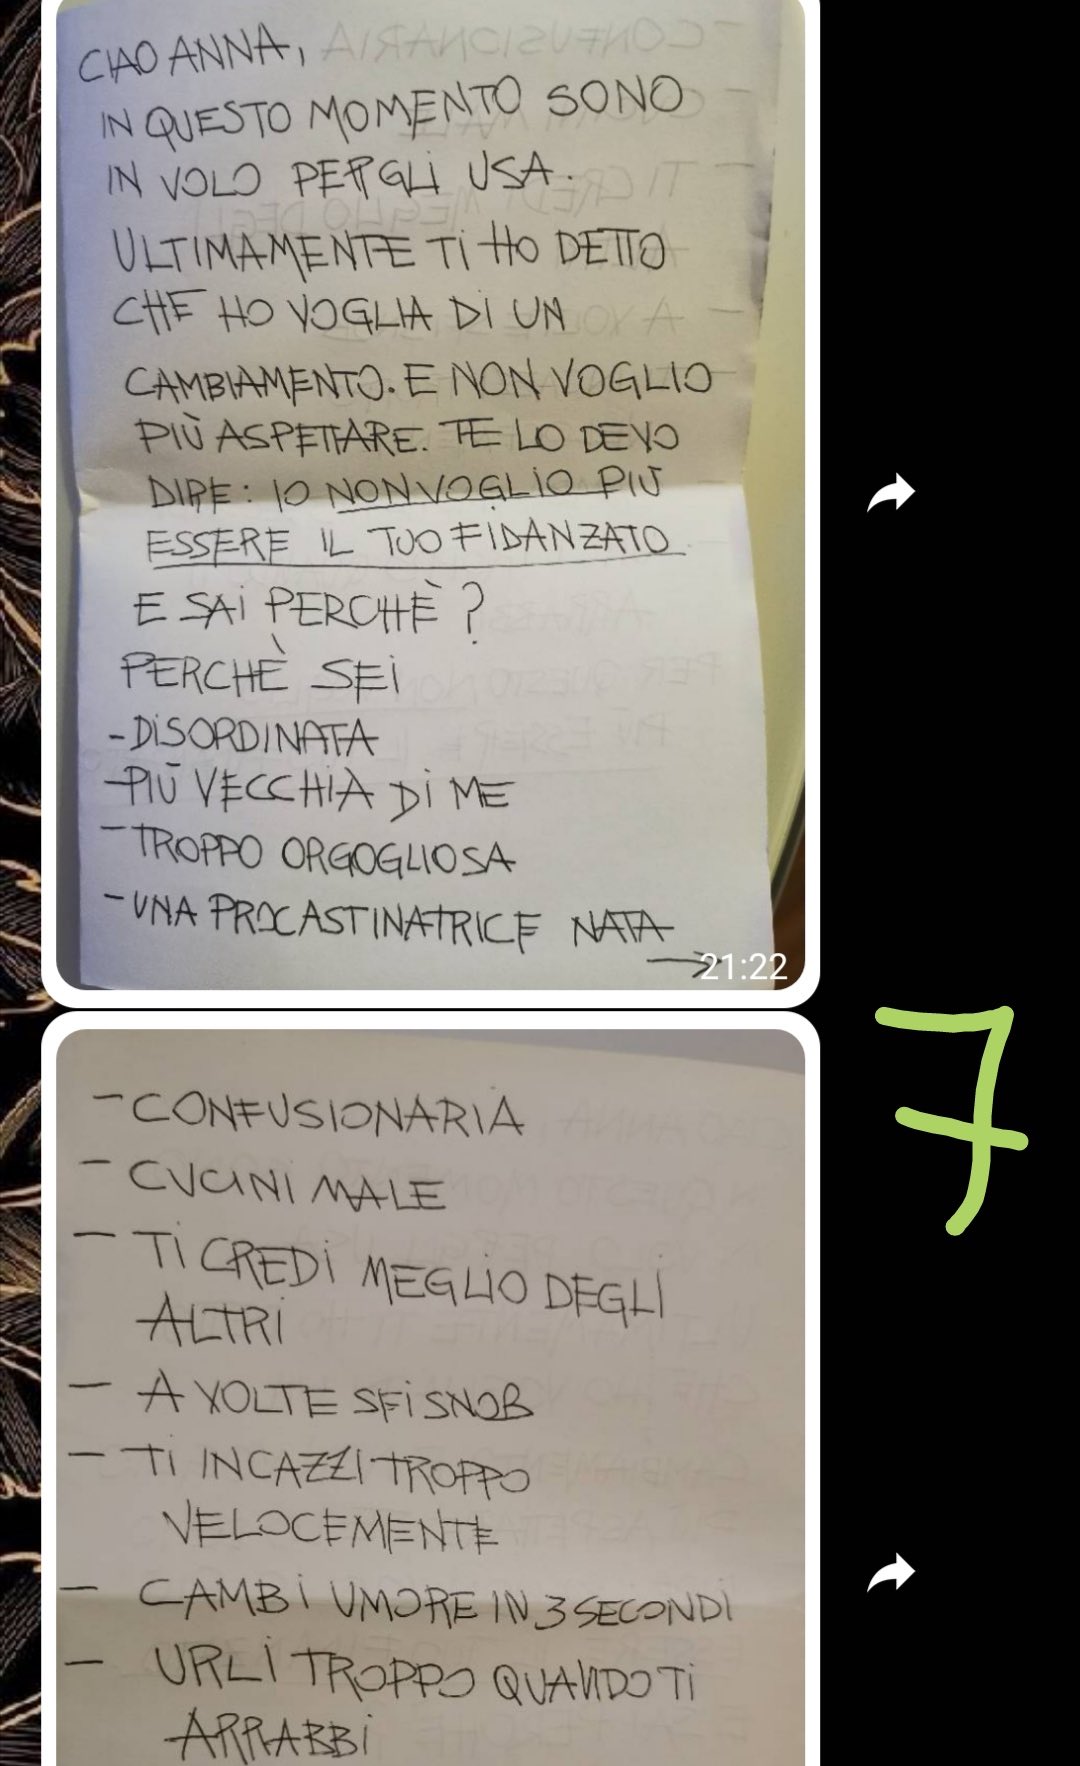 CIAO ANNA,
IN QUESTO MOMENTO SONO
IN VOLO PER GLI USA.
ULTIMAMENTE TI HO DETTO
CHE HO VOGLIA DI UN
CAMBIAMENTO. E NON VOGLIO
PIÙ ASPETTARE. TE LO DEVO
DIRE: IO NON VOGLIO PIÙ
ESSERE IL TUO FIDANZATO
E SAI PERCHÈ?
PERCHÈ SEI
-DISORDINATA
-PIÙ VECCHIA DI ME
-TROPPO ORGOGLIOSA
-UNA PROCASTINATRICE NATA
→
21:22
-CONFUSIONARIA
- CUCINI MALE
- TI CREDI MEGLIO DEGLI
ALTRI
- A VOLTE SEI SNOB
- TI INCAZZI TROPPO
VELOCEMENTE
- CAMBI UMORE IN 3 SECONDI
- URLI TROPPO QUANDO TI
ARRABBI
7